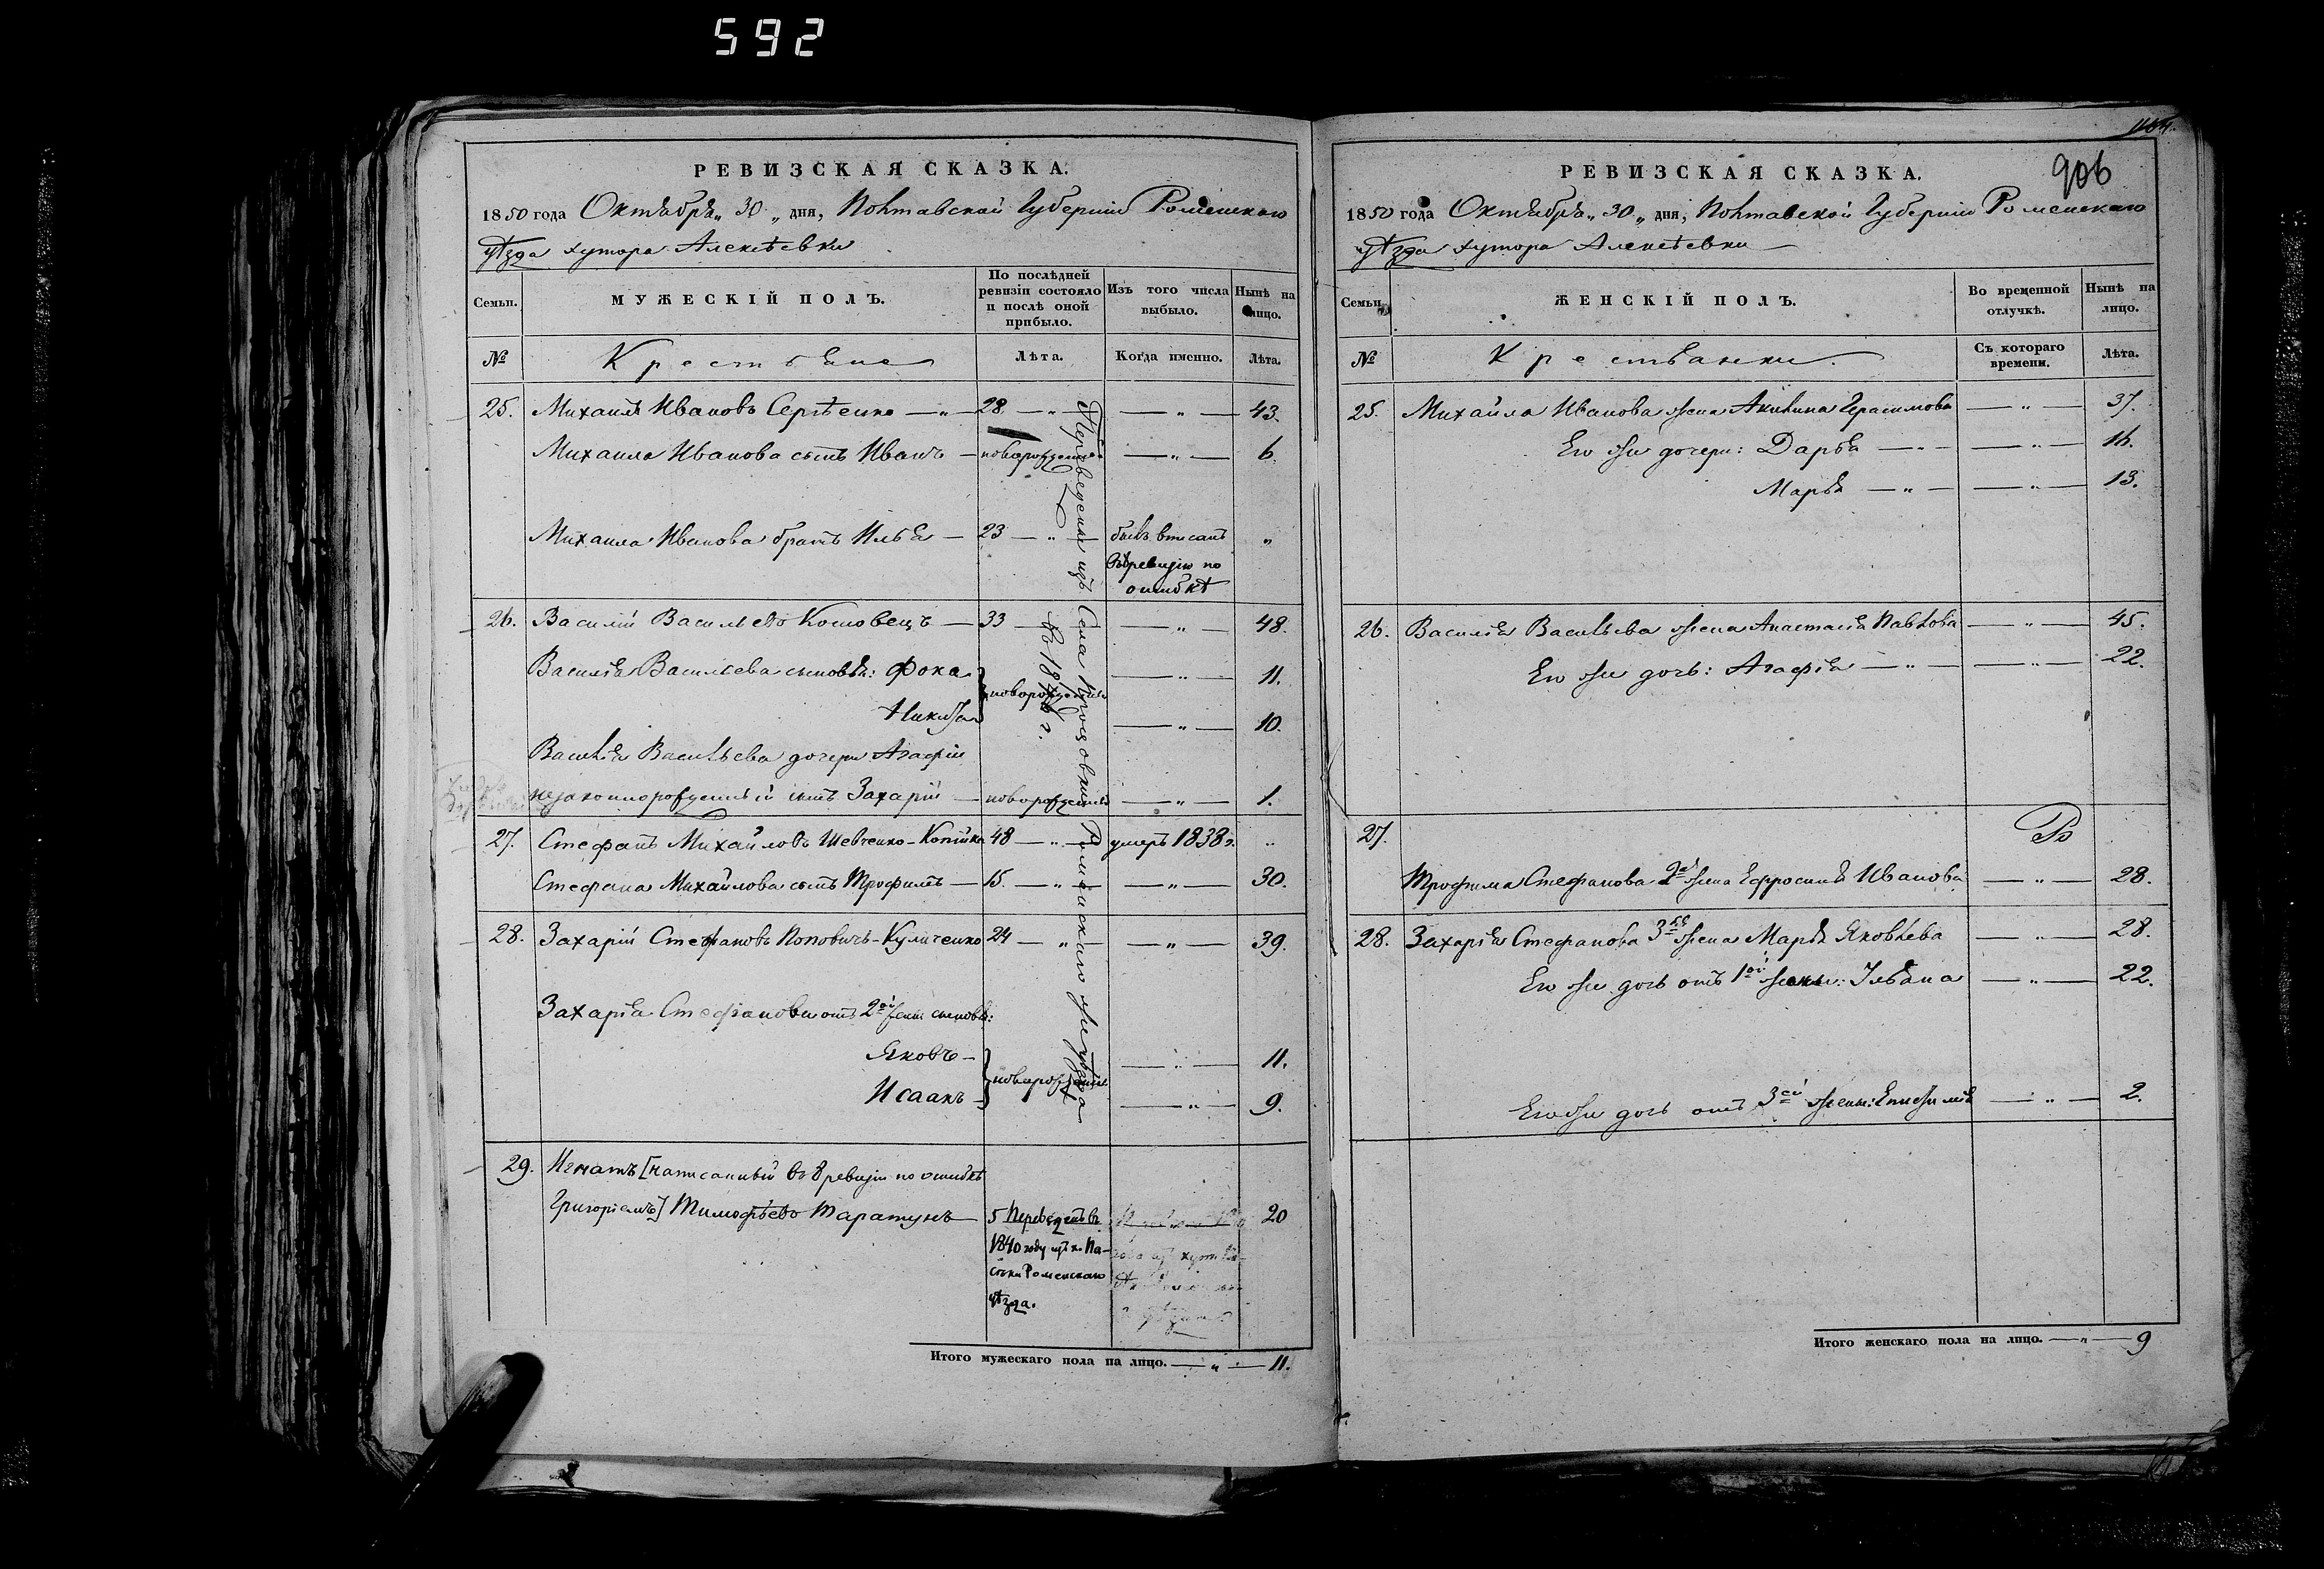 592
РЕВИЗСКАЯ СКАЗКА.
1850 года Октября „ 30 „ дня, Полтавской Губерніи Роменскаго
уѣзда хутора Алексѣевки
Семьи.
МУЖЕСКІЙ ПОЛЪ.
По послѣдней ревизіи состояло и послѣ оной прибыло.
Изъ того числа выбыло.
Нынѣ на лицо.
№
Крестьяне
Лѣта.
Когда именно.
Лѣта.
25. Михаилъ Ивановъ Сергѣенко — „ — 28 — „ — — „ — 43.
Михаила Иванова сынъ Иванъ — новорожденъ — „ — 6.
Михаила Иванова братъ Илья — 23 — „ — былъ вписанъ „
въ ревизію по
ошибкѣ
26. Василій Васильевъ — 33 — — „ — 48.
Василія Васильева сыновья: Фока — „ — 11.
новорожденны
Никита — „ — 10.
Василія Васильева дочери Агафіи
незаконнорожденный сынъ Захарій — новорожденъ — „ — 1.
27. Стефанъ Михайловъ Шевченко-Копійка 48 — „ — умеръ 1838 г. „
Стефана Михайлова сынъ Трофимъ — 15. — „ — — „ — 30.
28. Захарій Стефановъ Поповичъ-Куличенко 24 — „ — — „ — 39.
Захарія Стефанова отъ 2ой жены сыновья:
Яковъ — — „ — 11.
новорожденны
Исаакъ — — „ — 9.
29. Игнатъ [написанный въ 8 ревизіи по ошибкѣ
Григоріемъ] Тимофѣевъ Таратунъ — 5 Переведенъ въ 20
1840 году изъ х. Па-
сѣки Роменскаго
уѣзда.
Переведены изъ Села Роменскаго же уѣзда
въ г.
Итого мужескаго пола на лицо. — „ — 11.
906
РЕВИЗСКАЯ СКАЗКА.
1850 года Октября „ 30 „ дня, Полтавской Губерніи Роменскаго
уѣзда хутора Алексѣевки —
Семьи.
ЖЕНСКІЙ ПОЛЪ.
Во временной отлучкѣ.
Нынѣ на лицо.
№
Крестьянки.
Съ котораго времени.
Лѣта.
25. Михайла Иванова жена Акилина Герасимова — „ — 37.
Его же дочери: Дарья — „ — — „ — 16.
Марья — „ — — „ — 13.
26. Василія Васильева жена Анастасія Павлова — „ — 45.
Его же дочь: Агафія — „ — — „ — 22.
27.
Трофима Стефанова 2я жена Ефросинья Иванова — „ — 28.
28. Захарія Стефанова 3я жена Марья Яковлева — „ — 28.
Его же дочь отъ 1ой жены: Ульяна — „ — 22.
Его же дочь отъ 3ей жены: — „ — 2.
Итого женскаго пола на лицо. — „ — 9